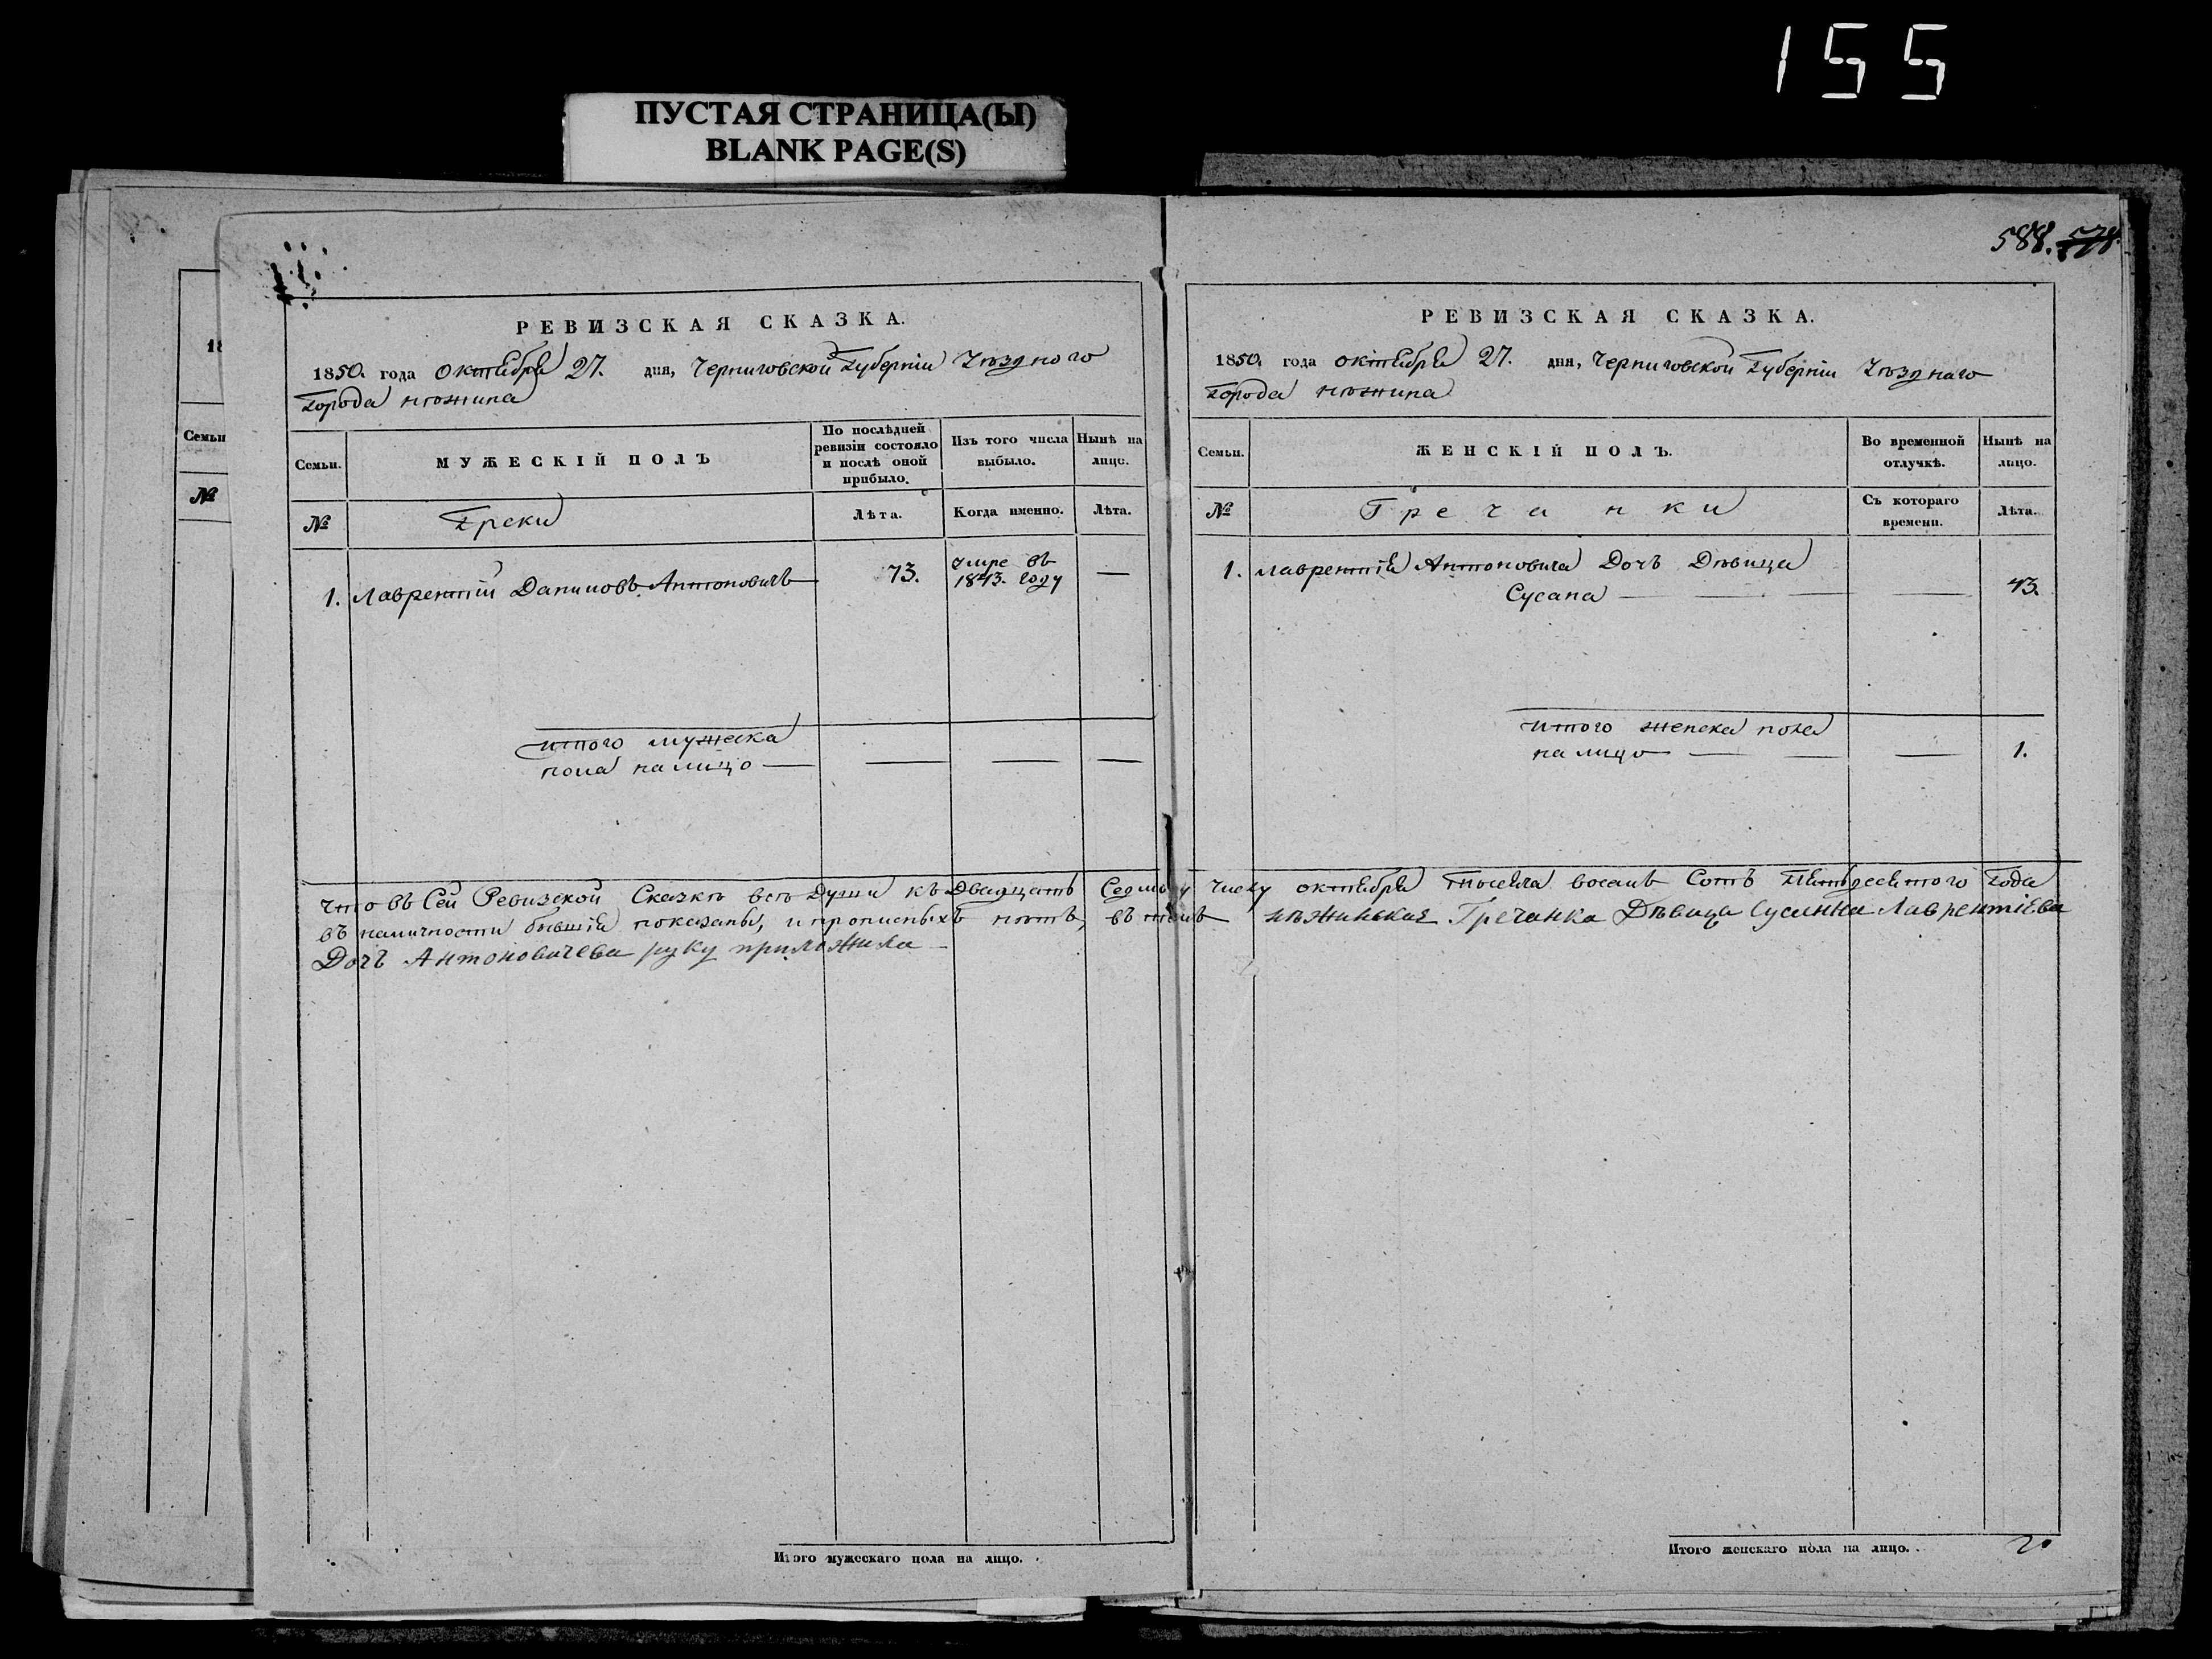 155
ПУСТАЯ СТРАНИЦА(Ы)
BLANK PAGE(S)
18
Семьи
№
РЕВИЗСКАЯ СКАЗКА.
1850. года октября 27. дня, Черниговской Губерніи Уѣздного
Города Нѣжина
Семьи.
МУЖЕСКІЙ ПОЛЪ
По послѣдней ревизіи состояло и послѣ оной прибыло.
Изъ того числа выбыло.
Нынѣ на лицо.
№
Греки
Лѣта.
Когда именно.
Лѣта.
1. Лаврентій Даниловъ Антоновичъ 73. умре въ 1843. году —
итого мужеска
пола на лицо — — — —
588. 578.
РЕВИЗСКАЯ СКАЗКА.
1850. года октября 27. дня, Черниговской Губерніи Уѣзднаго
Города Нѣжина
Семьи.
ЖЕНСКІЙ ПОЛЪ.
Во временной отлучкѣ.
Нынѣ на лицо.
№
Гречанки
Съ котораго времени.
Лѣта.
1. Лаврентія Антоновича Дочъ Дѣвица
Сусана — — — — 43.
итого женска пола
на лицо — — — 1.
что въ Сей Ревизской Сказкѣ всѣ Души къ Двадцать Седмому числу октября тысяча восемь Сотъ Пятдесятого Года
въ наличности бывшія показаны, и прописныхъ нѣтъ, въ томъ нѣжинская Гречанка Дѣвица Сусанна Лаврентіева
Дочъ Антоновичева руку приложила
Итого мужескаго пола на лицо.
Итого женскаго пола на лицо.